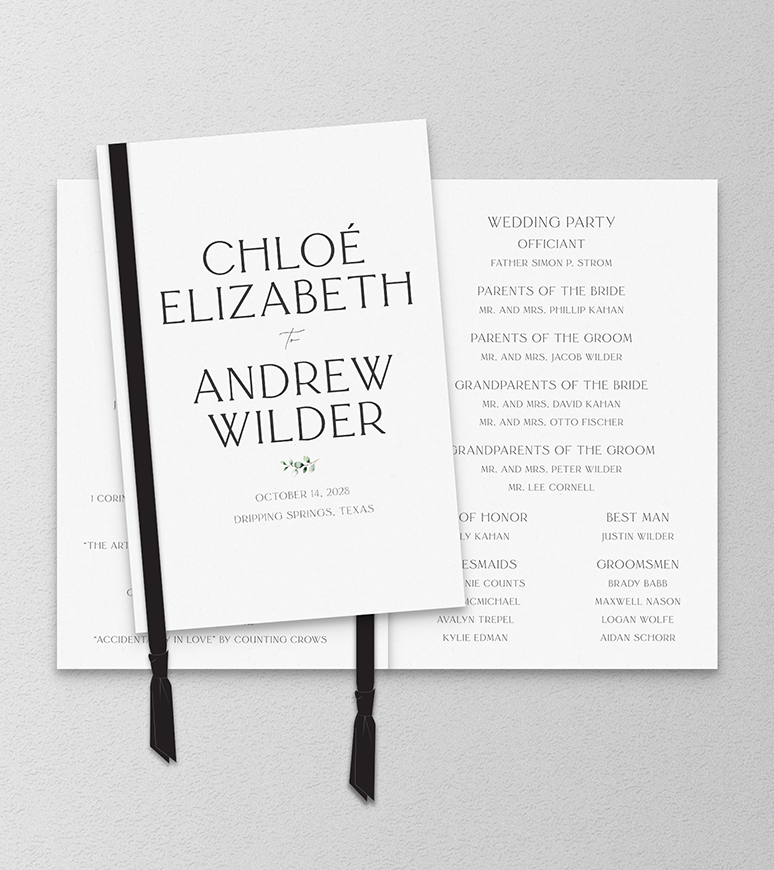 CHLOÉ
ELIZABETH
to
ANDREW
WILDER
OCTOBER 14, 2028
DRIPPING SPRINGS, TEXAS
I CORIN
"THE ART
IN LOVE" BY COUNTING CROWS
WEDDING PARTY
OFFICIANT
FATHER SIMON P. STROM
PARENTS OF THE BRIDE
MR. AND MRS. PHILLIP KAHAN
PARENTS OF THE GROOM
MR. AND MRS. JACOB WILDER
GRANDPARENTS OF THE BRIDE
MR. AND MRS. DAVID KAHAN
MR. AND MRS. OTTO FISCHER
GRANDPARENTS OF THE GROOM
MR. AND MRS. PETER WILDER
MR. LEE CORNELL
OF HONOR
LY KAHAN
ESMAIDS
NIE COUNTS
MCMICHAEL
AVALYN TREPEL
KYLIE EDMAN
BEST MAN
JUSTIN WILDER
GROOMSMEN
BRADY BABB
MAXWELL NASON
LOGAN WOLFE
AIDAN SCHORR